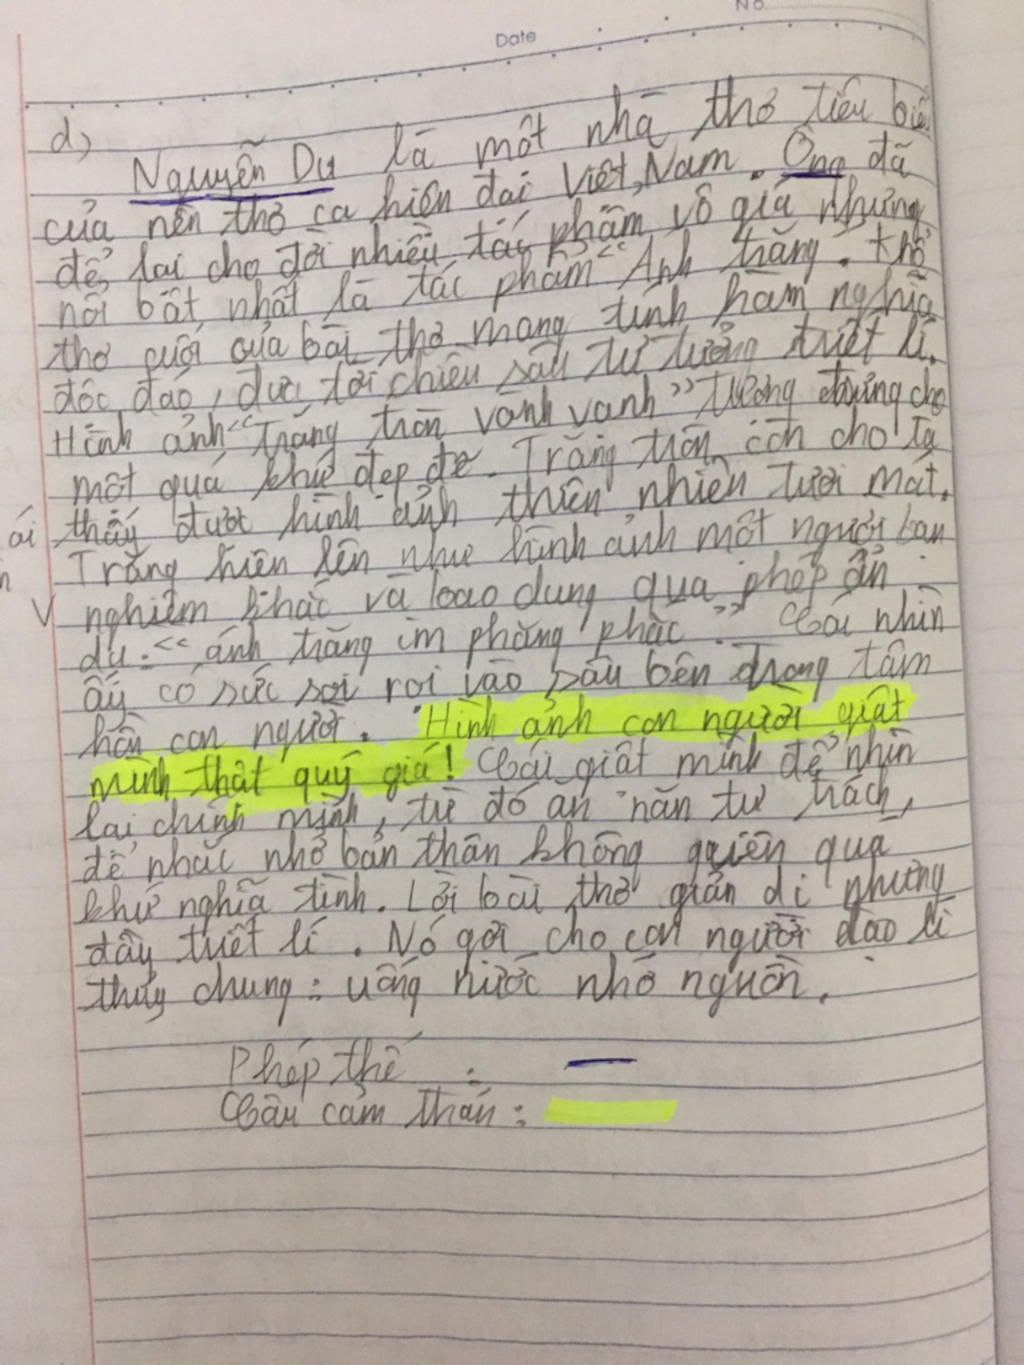 No.
Date
d)
Nguyễn Du là một nhà thơ tiêu biểu
của nền thơ ca hiện đại Việt Nam. Ông đã
để lại cho đời nhiều tác phẩm vô giá nhưng
nổi bật nhất là tác phẩm "Ánh trăng. Khổ
thơ cuối của bài thơ mang tính hàm nghĩa
độc đáo, đưa tới chiều sâu tư tưởng triết lí.
Hình ảnh "Trăng tròn vành vạnh" tượng trưng cho
một quá khứ đẹp đẽ. Trăng tròn còn cho ta
thấy được hình ảnh thiên nhiên tươi mát.
Trăng hiện lên như hình ảnh một người bạn
nghiêm khắc và bao dung qua phép ẩn
dụ: "ánh trăng im phăng phắc". Cái nhìn
ấy có sức soi rọi vào sâu bên trong tâm
hồn con người. Hình ảnh con người giật
mình thật quý giá! Cái giật mình để nhìn
lại chính mình, từ đó ăn năn tự trách,
để nhắc nhở bản thân không quên quá
khứ nghĩa tình. Lời bài thơ giản dị nhưng
đầy triết lí. Nó gợi cho con người đạo lí
thủy chung: uống nước nhớ nguồn.
Phép thế :
Câu cảm thán :